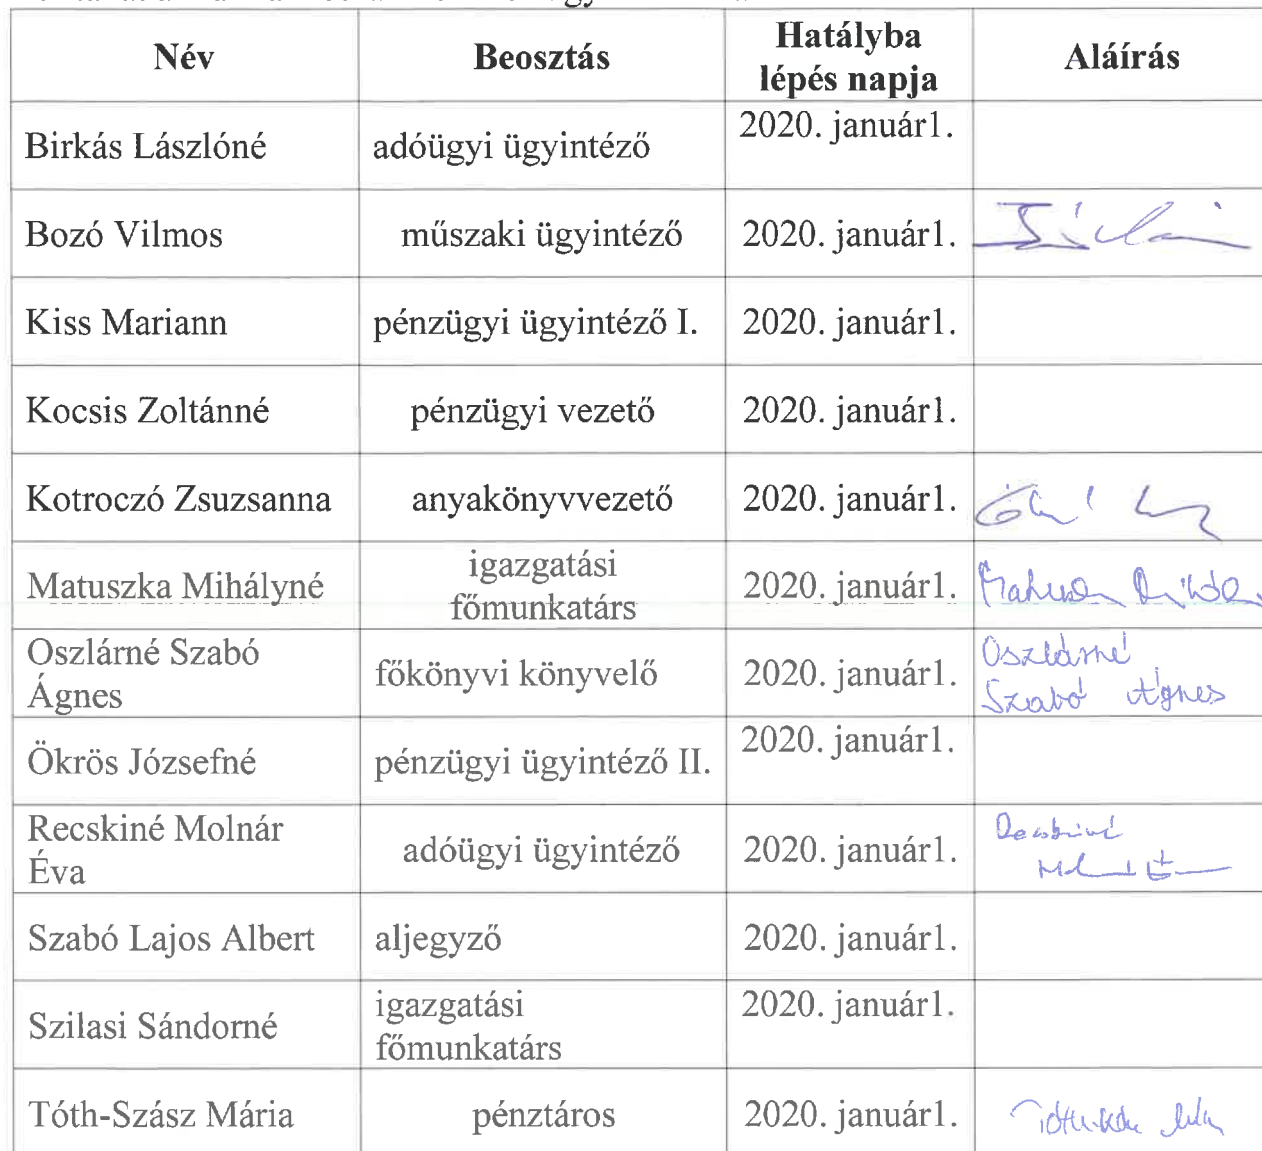 Név Beosztás Hatályba lépés napja Aláírás
Birkás Lászlóné adóügyi ügyintéző 2020. január1.
Bozó Vilmos műszaki ügyintéző 2020. január1.
Kiss Mariann pénzügyi ügyintéző I. 2020. január1.
Kocsis Zoltánné pénzügyi vezető 2020. január1.
Kotroczó Zsuzsanna anyakönyvvezető 2020. január1.
Matuszka Mihályné igazgatási főmunkatárs 2020. január1.
Oszlárné Szabó Ágnes főkönyvi könyvelő 2020. január1. Oszlárné Szabó Ágnes
Ökrös Józsefné pénzügyi ügyintéző II. 2020. január1.
Recskiné Molnár Éva adóügyi ügyintéző 2020. január1.
Szabó Lajos Albert aljegyző 2020. január1.
Szilasi Sándorné igazgatási főmunkatárs 2020. január1.
Tóth-Szász Mária pénztáros 2020. január1.